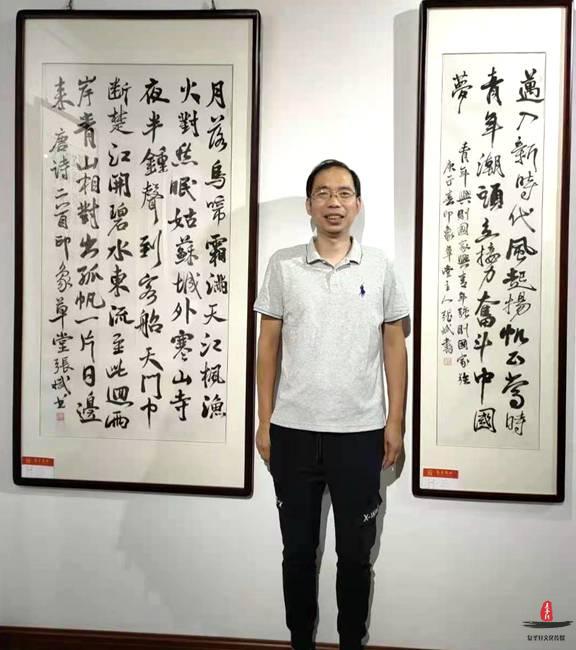 月落烏啼霜滿天江楓漁
火對愁眠姑蘇城外寒山寺
夜半鍾聲到客船天門中
断楚江開碧水東流至此迴兩
岸青山相對出孤帆一片日邊
来 唐诗二首印象草堂張斌书
邁入新時代風起揚帆正當時
青年潮頭立接力奮斗中國
夢
青年興則國家興青年强則國家强
庚子春印象草堂主人張斌書